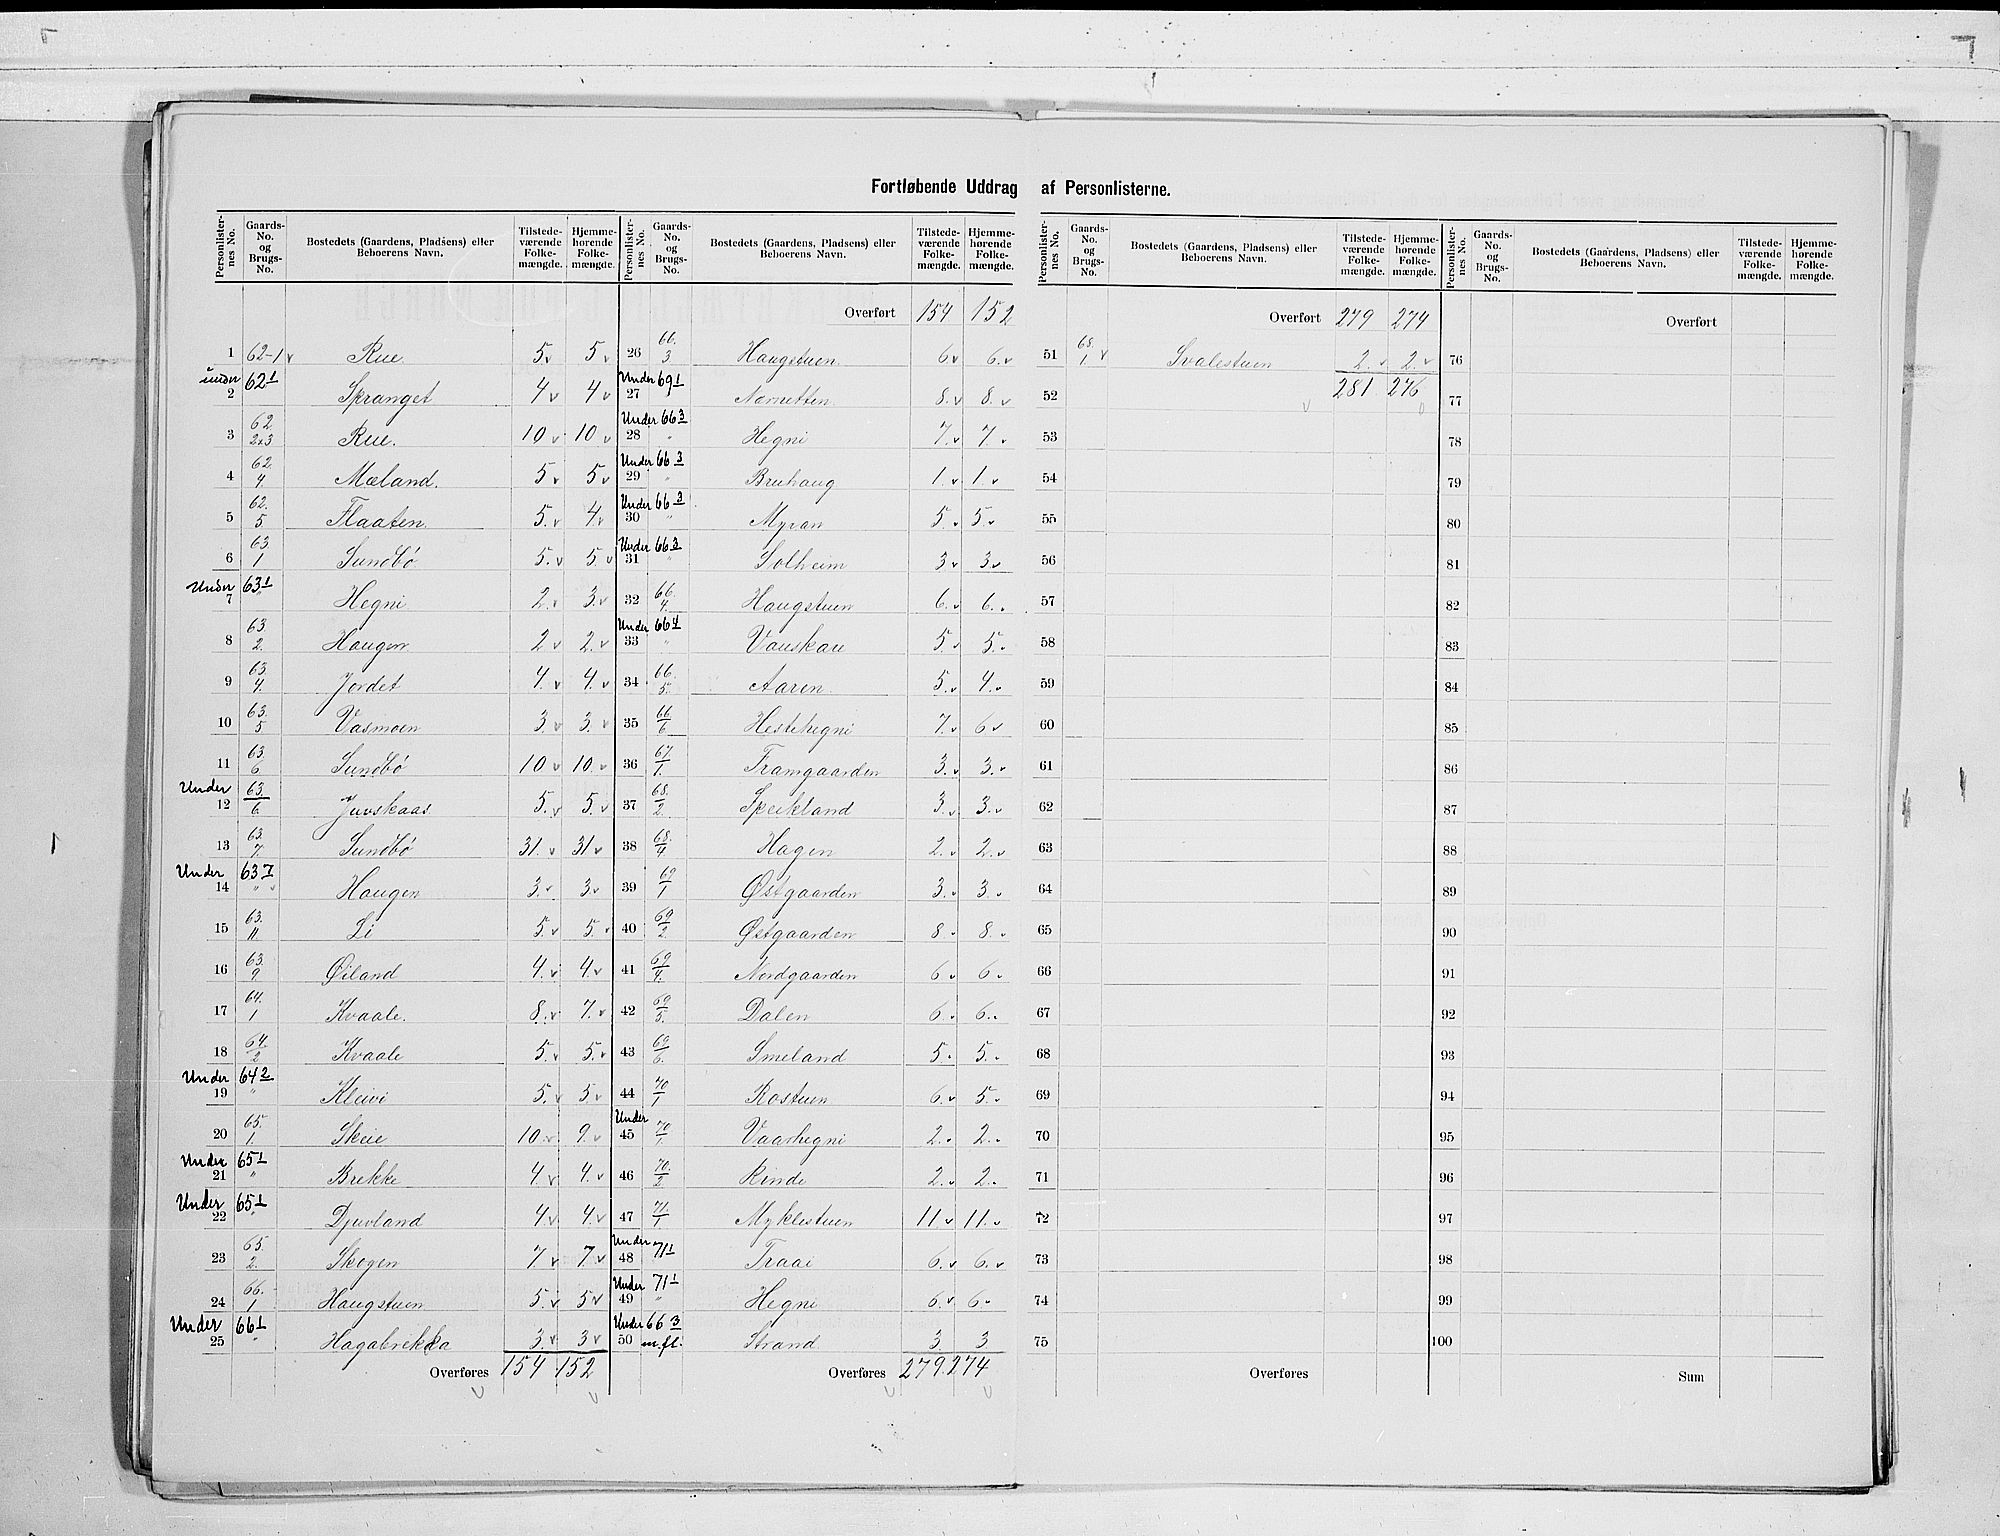 Fortløbende Uddrag af Personlisterne.
Personlister-nes No. | Gaards-No. og Brugs-No. | Bostedets (Gaardens, Pladsens) eller Beboerens Navn. | Tilstedeværende Folkemængde. | Hjemmehørende Folkemængde.
1 62-1 Rue 5 5
under 2 62 1 Spranget 4 4
3 62 2&3 Rue. 10 10
4 62. 4. Mæland. 5 5
5 62. 5. Flaaten. 5. 4.
6 63. 1 Sundbø 5. 5
Under 7 63 1 " Hegni 2. 3.
8 63. 2. Haugen 2 2.
9 63. 4. Jordet 4. 4.
10 63. 5 Vasmoen 3. 3.
11 63. 6 Sundbø 10. 10.
Under 12 63. 6. Juvskaas 5. 5.
13 63. 7. Sundbø 31. 31
Under 14 63 7 " Haugen 3. 3.
15 63. 11. Li 5. 5.
16 63. 9 Øiland 4. 4
17 64. 1 Kvaale. 8. 7.
18 64. 2 Kvaale 5. 5.
Under 19 64 2 " Kleivi 5. 5
20 65. 1. Skeie 10 9.
Under 21 65 1 " Brekke 4 4.
Under 22 65 1 " Djuvland 4. 4.
23 65. 2. Skogen 7 7
24 66. 1 Haugstuen 5. 5
Under 25 66 1 " Hagabrekka 3. 3
Overføres 154 152
Personlister-nes No. | Gaards-No. og Brugs-No. | Bostedets (Gaardens, Pladsens) eller Beboerens Navn. | Tilstedeværende Folkemængde. | Hjemmehørende Folkemængde.
Overført 154 152
26 66. 3. Haugstuen 6 6.
Under 27 69 1 Nørnetten 8. 8.
Under 28 66 3 " Hegni 7. 7.
Under 29 66 3 " Bruhaug 1. 1.
Under 30 66 3 " Myran 5. 5.
Under 31 66 3 " Solheim 3 3.
32 66. 4. Haugstuen 6. 6.
Under 33 66 4 " Vauskau 5. 5.
34 66. 5. Aaren. 5. 4.
35 66 6 Hestehegni 7. 6
36 67 1. Framgaarden 3. 3.
37 68. 2. Speikland 3. 3.
38 68. 4. Hagen 2. 2.
39 69 1 Østgaarden 3. 3.
40 69 2. Østgaarden 8. 8.
41 69 4. Nordgaarden 6 6.
42 69 5. Dalen 6. 6.
43 69 6. Smeland 5. 5.
44 70 1 Rostuen 6. 5.
Under 45 70 1. Vaarhegni 2. 2.
46 70. 2 Rinde 2. 2.
47 71. 1. Myklestuen 11 11.
Under 48 71 1 " Traai 6. 6.
Under 49 71 1 " Hegni 6. 6.
Under 50 66 3 m.fl. Strand 3. 3
Overføres 279. 274
Personlister-nes No. | Gaards-No. og Brugs-No. | Bostedets (Gaardens, Pladsens) eller Beboerens Navn. | Tilstedeværende Folkemængde. | Hjemmehørende Folkemængde.
Overført 279 274
51 68. 1. Svalestuen 2. 2.
52 281. 276
53
54
55
56
57
58
59
60
61
62
63
64
65
66
67
68
69
70
71
72
73
74
75
Overføres
Personlister-nes No. | Gaards-No. og Brugs-No. | Bostedets (Gaardens, Pladsens) eller Beboerens Navn. | Tilstedeværende Folkemængde. | Hjemmehørende Folkemængde.
Overført
76
77
78
79
80
81
82
83
84
85
86
87
88
89
90
91
92
93
94
95
96
97
98
99
100
Sum